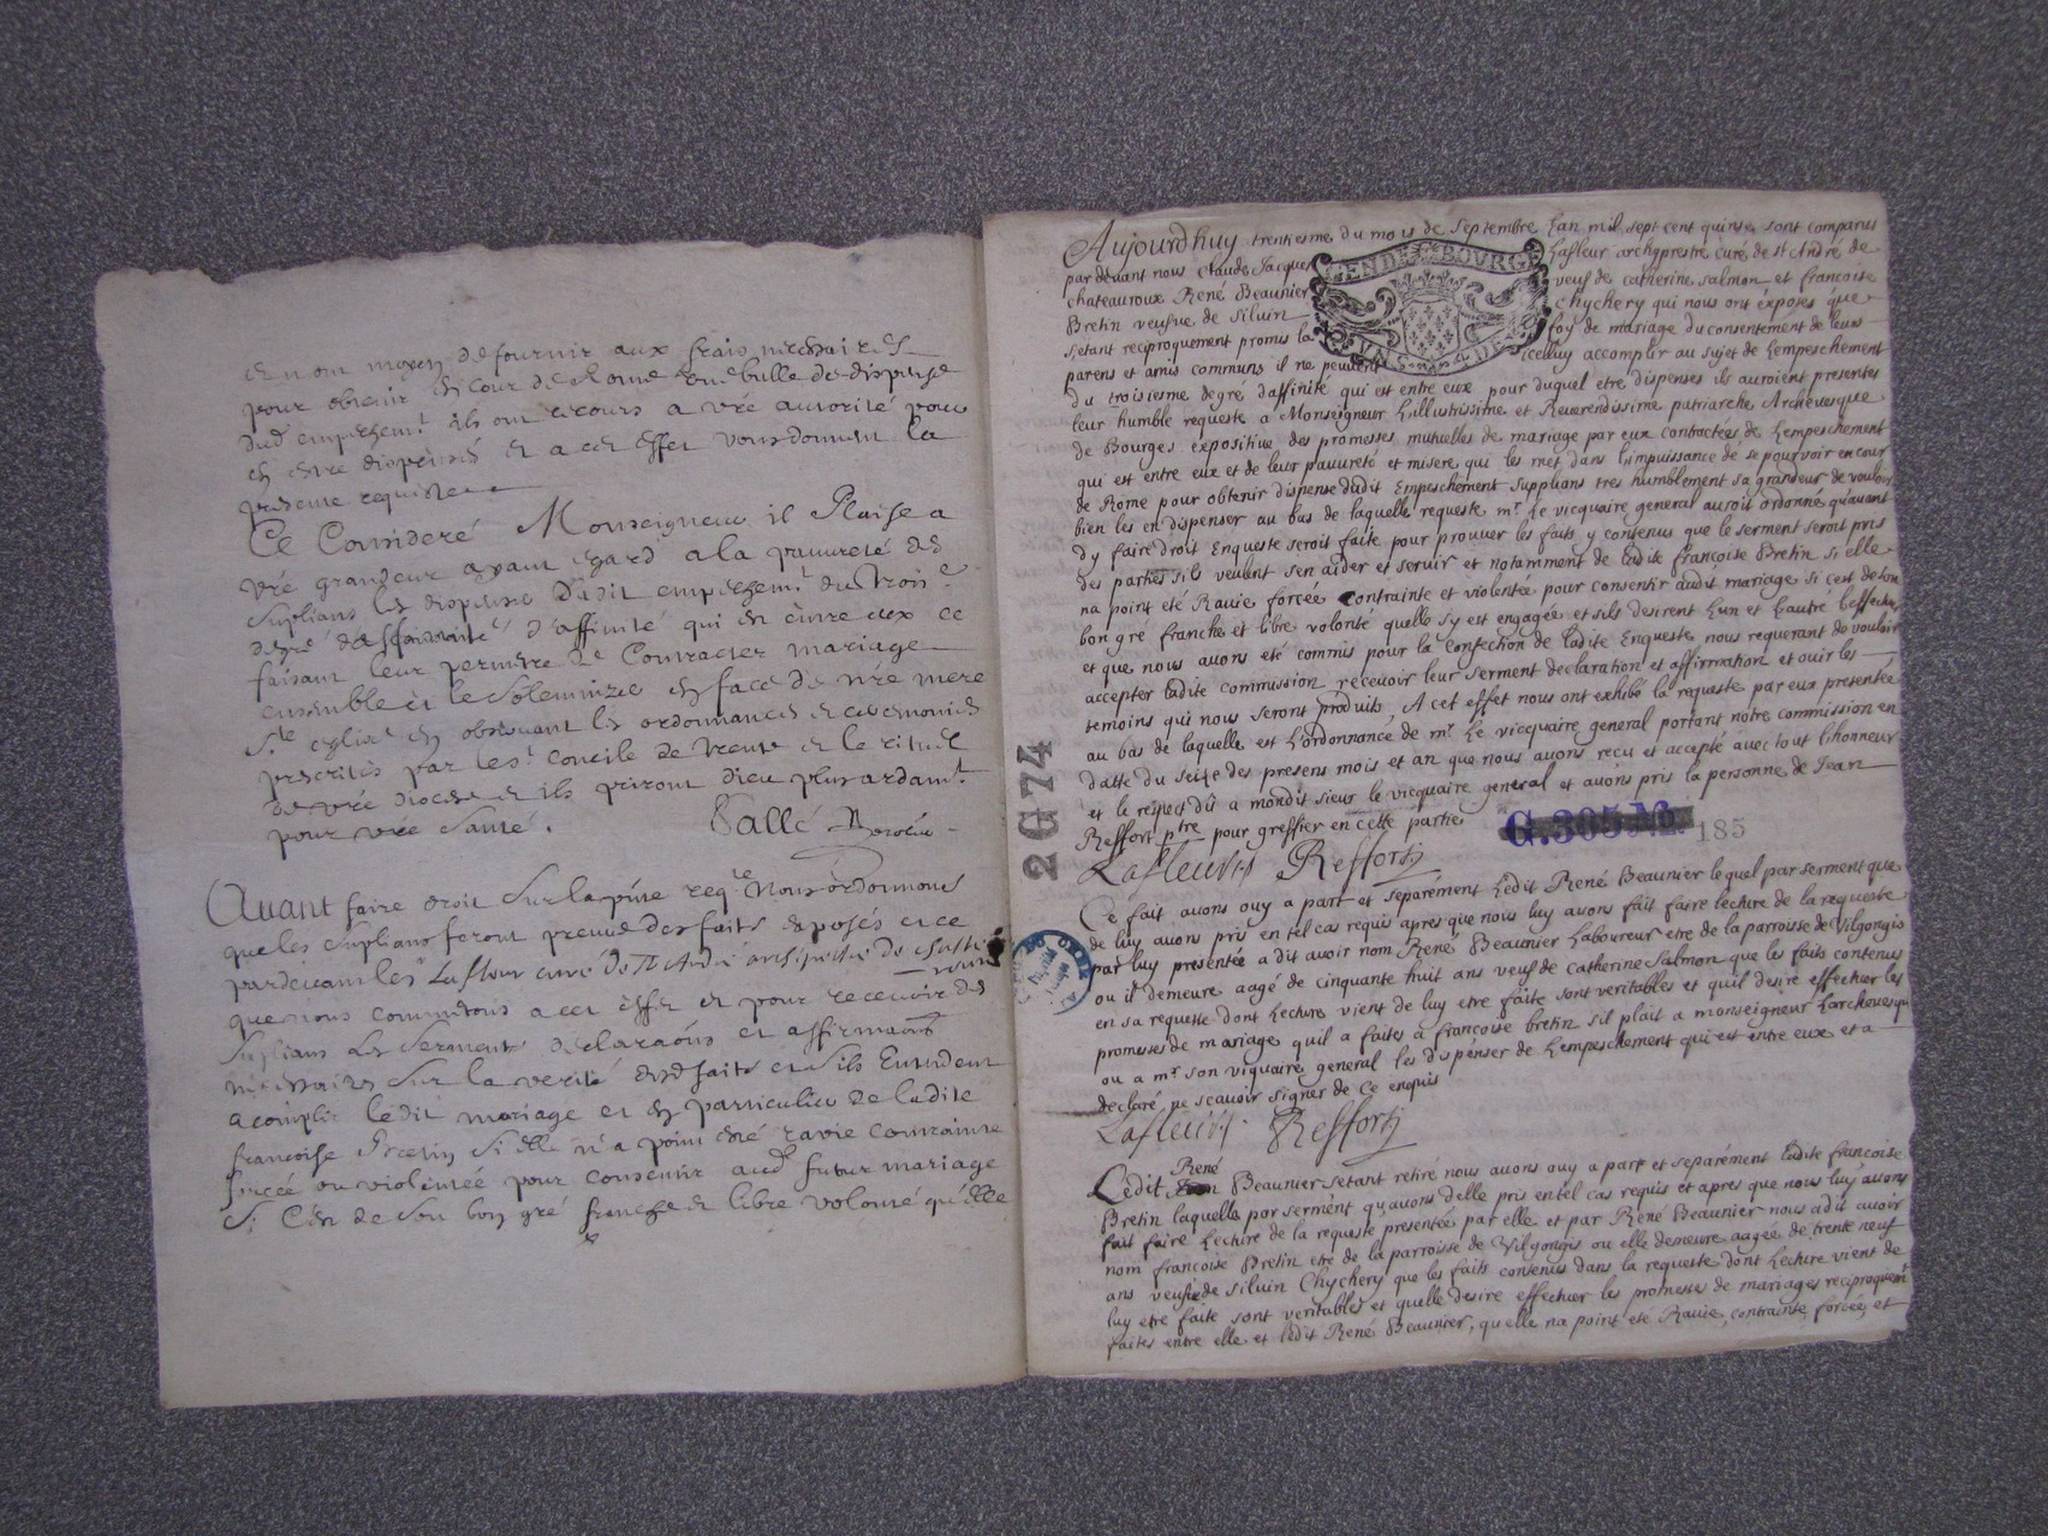 en nont moyen de fournir aux frais necessaires
pour obtenir en cour de Rome une bulle de dispense
dud. empeschemt. ils ont recours a vre autorité pour
en estre dispensés et a cet effet vous donnent la
presente requiste
Ce Consideré Monseigneur il Plaise a
vre grandeur ayant egard a la pauureté des
suplians les dispenser dudit empeschemt. du trois.e
degré d'affinité qui est entre eux ce
faisant leur permettre de Contracter mariage
ensemble et le solemnizer en face de nre mere
Ste eglise en obseruant les ordonnances et ceremonies
prescrites par le st. Concile de trente et le rituel
de vre diocese et ils priront dieu plus ardamt.
pour vre santé.
Auant faire droit sur la pnte reqte Nous ordonnons
que les suplians feront preuue des faits exposés et ce
pardeuant le sr Lafleur curé de St André archiprestre de chasteau
roux
que nous commettons a cet effet et pour receuoir des
suplians les serments declaraons et affirmaons
necessaires sur la verité desd faits et sils Entendent
acomplir ledit mariage et en particulier de ladite
francoise Bretin si elle n'a point esté rauie contrainte
forcée ou violentée pour consentir aud futur mariage
si C'est de son bon gré franche et libre volonté qu'elle
Aujourdhuy trentiesme du mois de Septembre Lan mil sept cent quinse sont comparus
GEND. DE BOURGE
par devant nous Claude Jacques Lafleur archyprestre curé de st André de
chateauroux René Beaunier veuf de catherine salmon et francoise
Bretin veufue de Siluin Chychery qui nous ont exposes que
s'etant reciproquement promis la foy de mariage du consentement de leurs
parens et amis communs il ne peuuent icelluy accomplir au sujet de Lempeschement
du troisiesme degré daffinité qui est entre eux pour duquel etre dispenses ils auroient presentes
leur humble requeste a Monseigneur Lillustrissime et Reuerendissime patriarche Archeuesque
de Bourges expositiue des promesses mutuelles de mariage par eux contractées, de Lempeschement
qui est entre eux et de leur pauureté et misere qui les met dans l'impuissance de se pouruoir en cour
de Rome pour obtenir dispense dudit Empeschement supplians tres humblement sa grandeur de vouloir
bien les en dispenser au bas de laquelle requeste mr. Le vicquaire general auroit ordonné qu'auant
dy faire droit Enqueste seroit faite pour prouuer les faits y contenus que le serment seroit pris
des parties sils veulent sen aider et seruir et notamment de Ladite francoise Bretin si elle
na point eté Rauie forcée contrainte et violentée pour consentir audit mariage si cest de son
bon gré franche et libre volonté quelle sy est engagée et sils desirent Lun et Lautre Leffectuer
et que nous auons eté commis pour la confection de ladite Enqueste nous requerant de vouloir
accepter ladite commission receuoir leur serment declaration et affirmation et ouir les
temoins qui nous seront produits, A cet effet nous ont exhibé la requeste par eux presentée
au bas de laquelle est L'ordonnance de mr. Le vicquaire general portant nôtre commission en
datte du seize des presens mois et an que nous auons recu et accepté auec tout l'honneur
et le respect dû a mondit sieur le vicquaire general et auons pris la personne de Jean
Reffort ptre pour greffier en cette partie
2G74
G.305
185
Lafleur Reffort
Ce fait auons ouy a part et separement Ledit René Beaunier lequel par serment que
de luy auons pris en tel cas requis apres que nous luy auons fait faire lecture de la requeste
par luy presentée a dit auoir nom René Beaunier Laboureur etre de la parroisse de Vilgongis
ou il demeure aagé de cinquante huit ans veuf de Catherine Salmon que les faits contenus
en sa requeste dont Lecture vient de luy etre faite sont veritables et quil desire effectuer les
promesses de mariage quil a faites a francoise bretin sil plait a monseigneur Larcheuesque
ou a mr. son viquaire general les dispenser de Lempeschement qui est entre eux et a
declaré ne scauoir signer de ce enquis
Lafleur Reffort
René
Ledit Beaunier setant retiré nous auons ouy a part et separément Ladite francoise
Bretin laquelle par serment qu'auons delle pris en tel cas requis et apres que nous luy auons
fait faire Lecture de la requeste presentée par elle et par René Beaunier nous a dit auoir
nom francoise Bretin etre de la parroisse de Vilgongis ou elle demeure aagée de trente neuf
ans veufue de Siluin Chychery que les faits contenus dans la requeste dont Lecture vient de
luy etre faite sont veritables et quelle desire effectuer les promesses de mariages reciproquemt
faites entre elle et ledit René Beaunier, quelle na point eté Rauie, contrainte, forcée, et